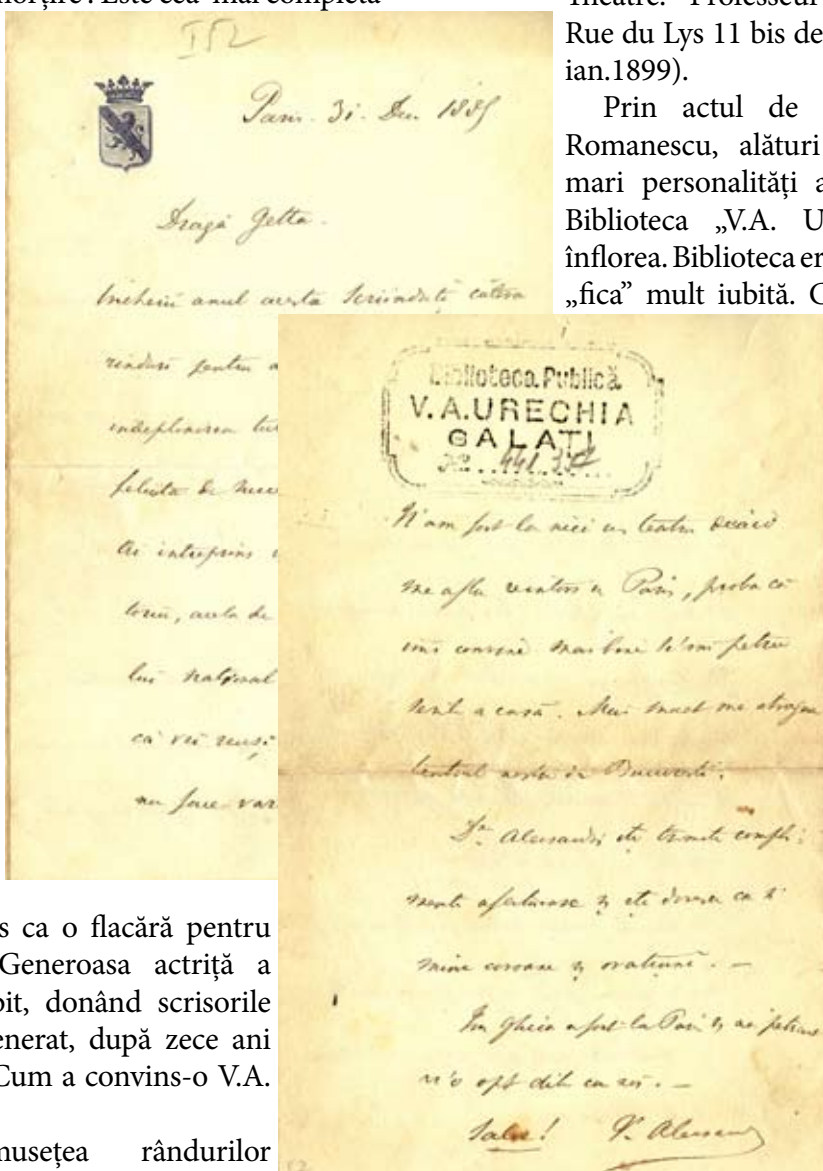 norțire . Este cea mai completă
Théatre. Professeur
Rue du Lys 11 bis de
ian.1899).
Prin actul de
Romanescu, alături
mari personalități a
Biblioteca „V.A. U
înflorea. Biblioteca er
„fica” mult iubită. C
152
Paris. 31. Dec 1885
Dragă Getta.
Inchein anul acesta scriindu-ti câteva
renduri pentru a
indeplinirea
felicita de
ai intreprins
acela de
lui național
că vei reuși
nu face
Biblioteca Publică
V.A.URECHIA
GALAȚI
N'am fost la nici un teatru decând
me aflu reintors in Paris, proba că
imi convine mai bine se'mi petrec
a casă. Mai mult me atrage
teatrul nostru din Bucuresti.
Dna Alecsandri ite trimite compli-
mente afectuoase și ite doresce ca si
mine coroane și ovatiuni. —
Ion Ghica a fost la Paris și au petrecut
opt dile cu noi. —
Salve! V. Alecsan
s ca o flacără pentru
Generoasa actriță a
bit, donând scrisorile
enerat, după zece ani
Cum a convins-o V.A.
musețea rândurilor